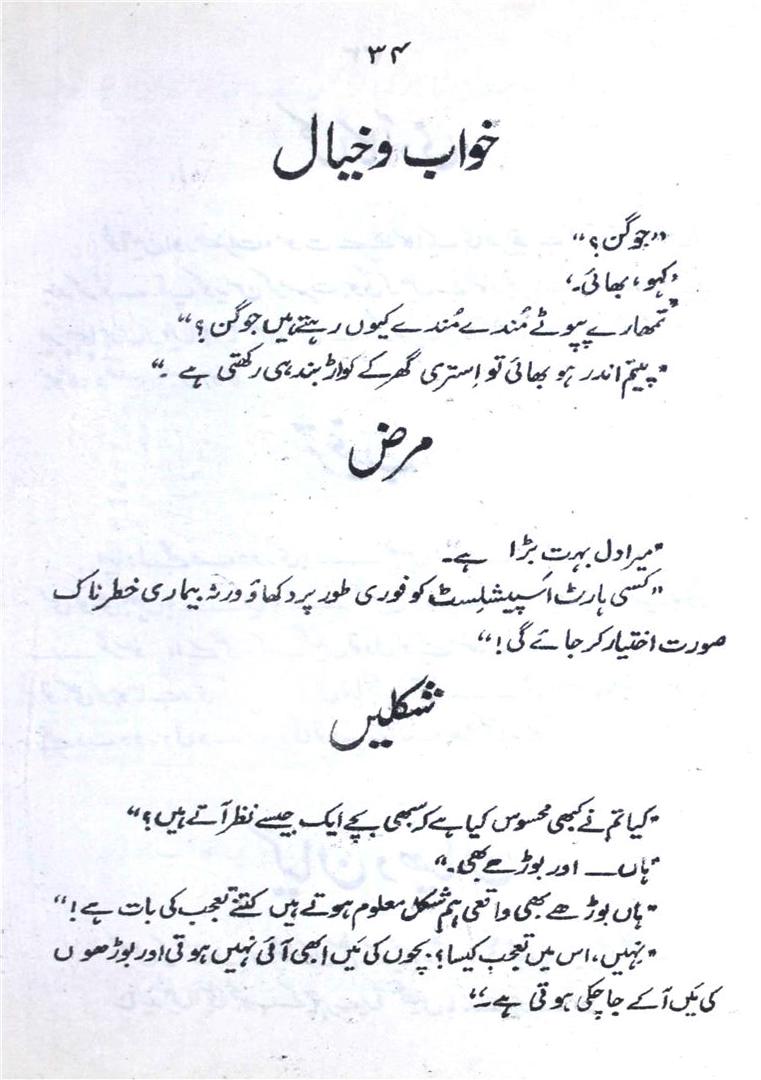 ۳۴
خواب و خیال
”جوگن؟“
’کہو، بھائی۔‘
”تمھارے پپوٹے مُندے مُندے کیوں رہتے ہیں جوگن؟“
”پیتم اندر ہو بھائی تو اِستری گھر کے کواڑ بند ہی رکھتی ہے۔“
مرض
”میرا دل بہت بڑا ہے۔
”کسی ہارٹ اَسپیشلِسٹ کو فوری طور پر دکھاؤ ورنہ بیماری خطرناک
صورت اختیار کر جائے گی!“
شکلیں
”کیا تم نے کبھی محسوس کیا ہے کہ سبھی بچے ایک جیسے نظر آتے ہیں؟“
”ہاں — اور بوڑھے بھی۔“
”ہاں بوڑھے بھی واقعی ہم شکل معلوم ہوتے ہیں کتنے تعجب کی بات ہے!“
”نہیں، اس میں تعجب کیسا؟ بچوں کی مَیں ابھی آئی نہیں ہوتی اور بوڑھوں
کی مَیں آ کے جا چکی ہوتی ہے۔“